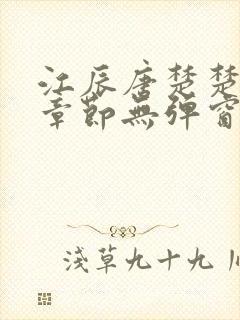 江辰唐楚楚
章節無彈窗
浅草九十九